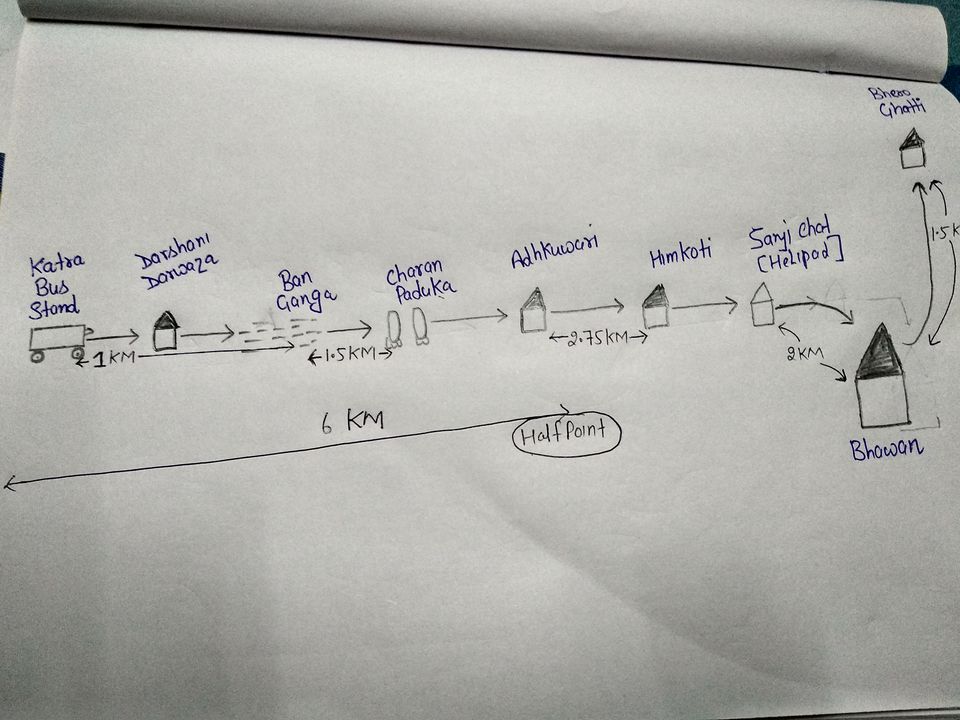 Bhero
Ghatti
1.5K
Katra
Bus
Stand
Darshani
Darwaza
Ban
Ganga
Charan
Paduka
Adhkuwari
Himkoti
Sanji Chat
[Helipad]
1KM
1.5KM
2.75KM
2KM
6 KM
Half Point
Bhawan